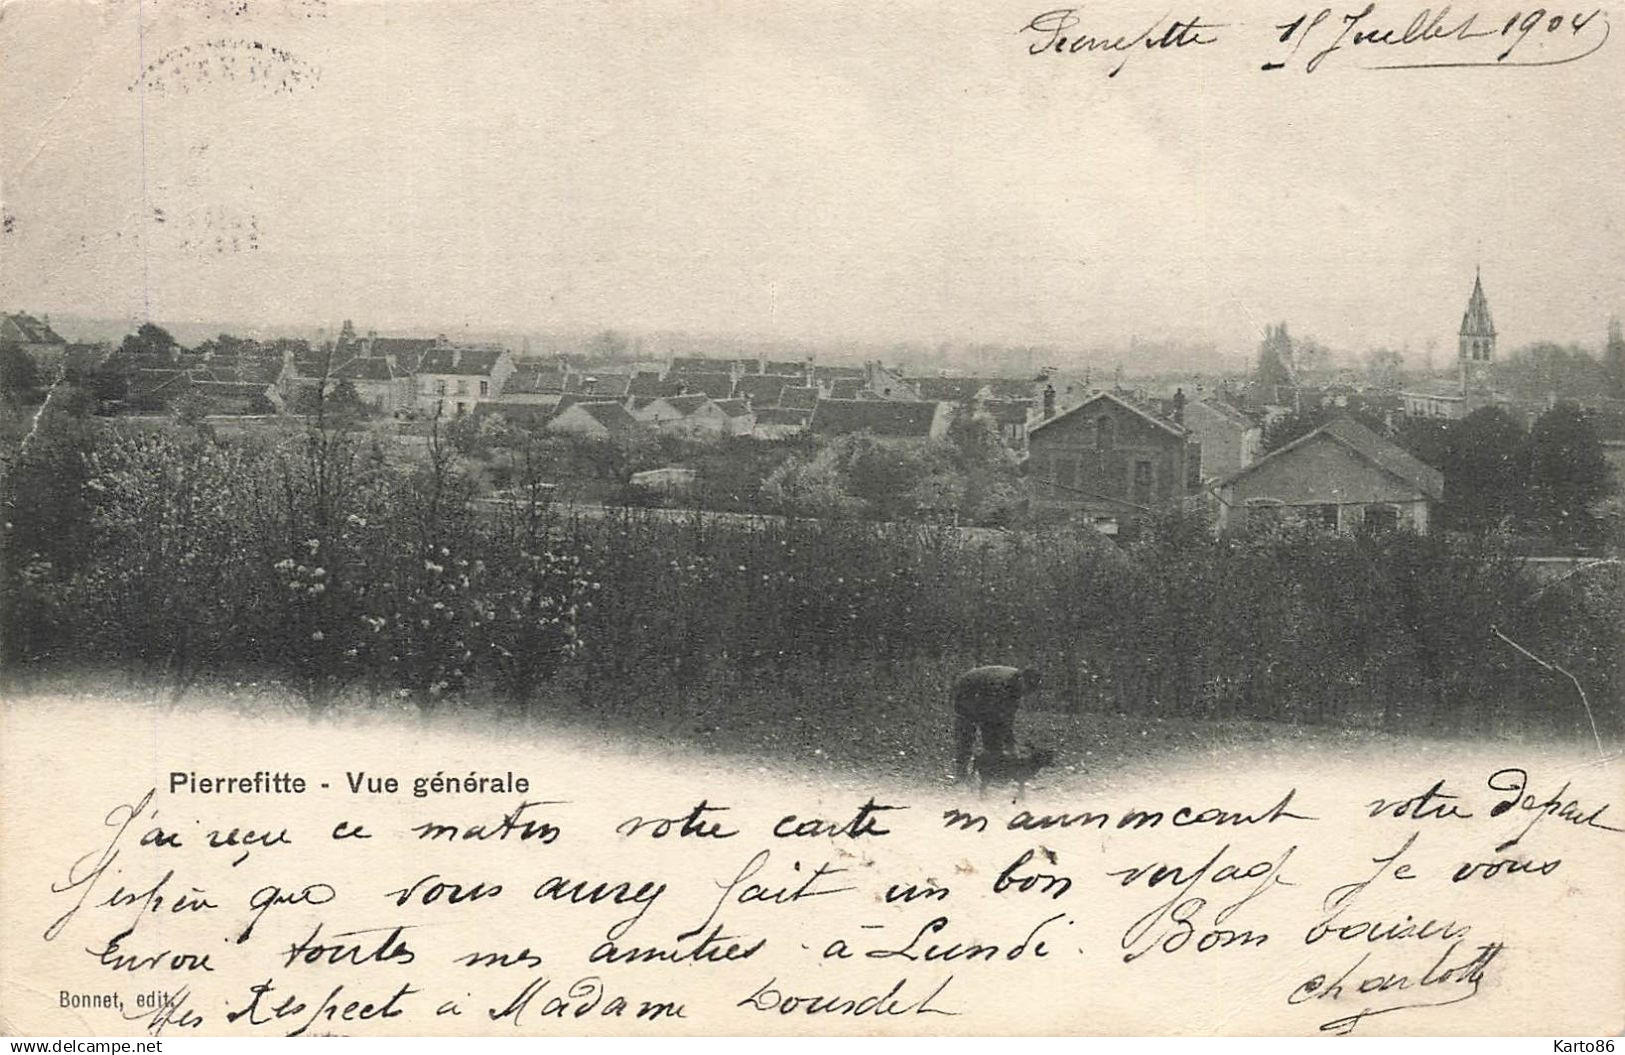 Pierrefitte 15 Juillet 1904
Pierrefitte - Vue générale
J'ai reçu ce matin votre carte m'annoncant votre Depart
J'espère que vous aurez fait un bon voyage Je vous
Envoie toutes mes amitiés à Lundi. Bons baisers
Charlotte
Bonnet, edit.
Mes Respects à Madame Dousdet
www.delcampe.net
Karto86